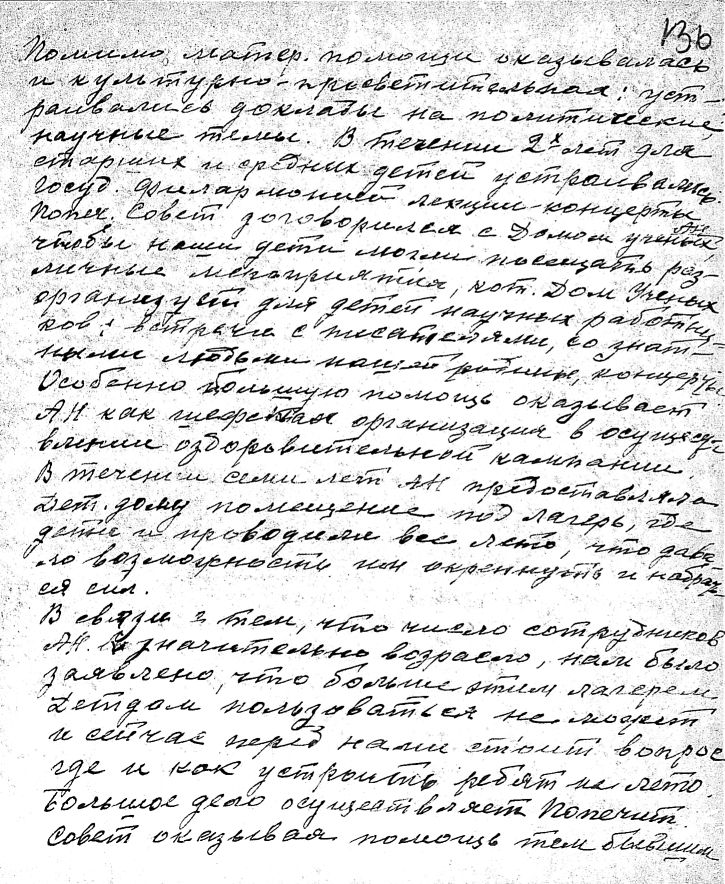 136
Помимо матер. помощи оказывалась
и культурно-просветительная: уст-
раивались доклады на политические,
научные темы. В течении 2х лет для
старших и средних детей устраивались
Госуд. Филармонией лекции-концерты
Попеч. Совет зоговорился с Домом ученых АН,
чтобы наши дети могли посещать раз-
личные мероприятия, кот. Дом Ученых
организует для детей научных работни-
ков: встречи с писателями, со знат-
ными людьми нашей родины, концерты
Особенно большую помощь оказывает
АН как шефская организация в осущест-
влении оздоровительной кампании.
В течении семи лет АН предоставляла
Дет. дому помещение под лагерь, где
дети и проводили все лето, что дава-
ло возможность им окрепнуть и набрать-
ся сил.
В связи с тем, что число сотрудников
АН. значительно возрасло, нам было
заявлено, что больше этим лагерем
Детдом пользоваться не может
и сейчас перед нами стоит вопрос
где и как устроить ребят на лето.
Большое дело осуществляет Попечит.
Совет оказывая помощь тем бывшим